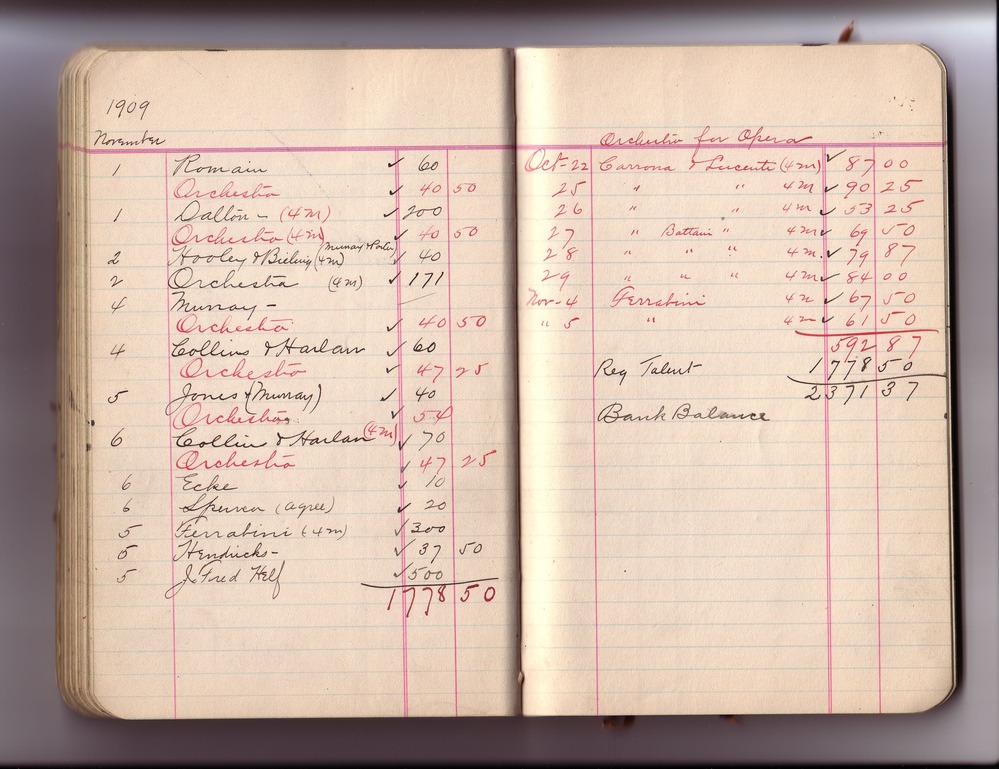 1909
November
1 Romain ✓ 60
Orchestra ✓ 40 50
1 Dalton - (4m) ✓ 200
Orchestra (4m) ✓ 40 50
2 Hooley & (4m) (Murray & Porter) ✓ 40
2 Orchestra (4m) ✓ 171
4 Murray - —
Orchestra ✓ 40 50
4 Collins & Harlan ✓ 60
Orchestra ✓ 47 25
5 Jones & (Murray) ✓ 40
Orchestra ✓ 54
6 Collins & Harlan (4m) ✓ 70
Orchestra ✓ 47 25
6 Ecke ✓ 10
6 Spencer (agree) ✓ 20
5 Ferrabini (4m) ✓ 300
5 Hendricks - ✓ 37 50
5 J. Fred Helf ✓ 500
1778 50
Orchestra for Opera
Oct-22 Carrona & Lucenti (4m) ✓ 87 00
25 " " 4m ✓ 90 25
26 " " 4m ✓ 53 25
27 " Battain " 4m ✓ 69 50
28 " " " 4m. ✓ 79 87
29 " " " 4m ✓ 84 00
Nov-4 Ferrabini 4m ✓ 67 50
" 5 " 4m ✓ 61 50
592 87
Reg Talent 1778 50
2371 37
Bank Balance